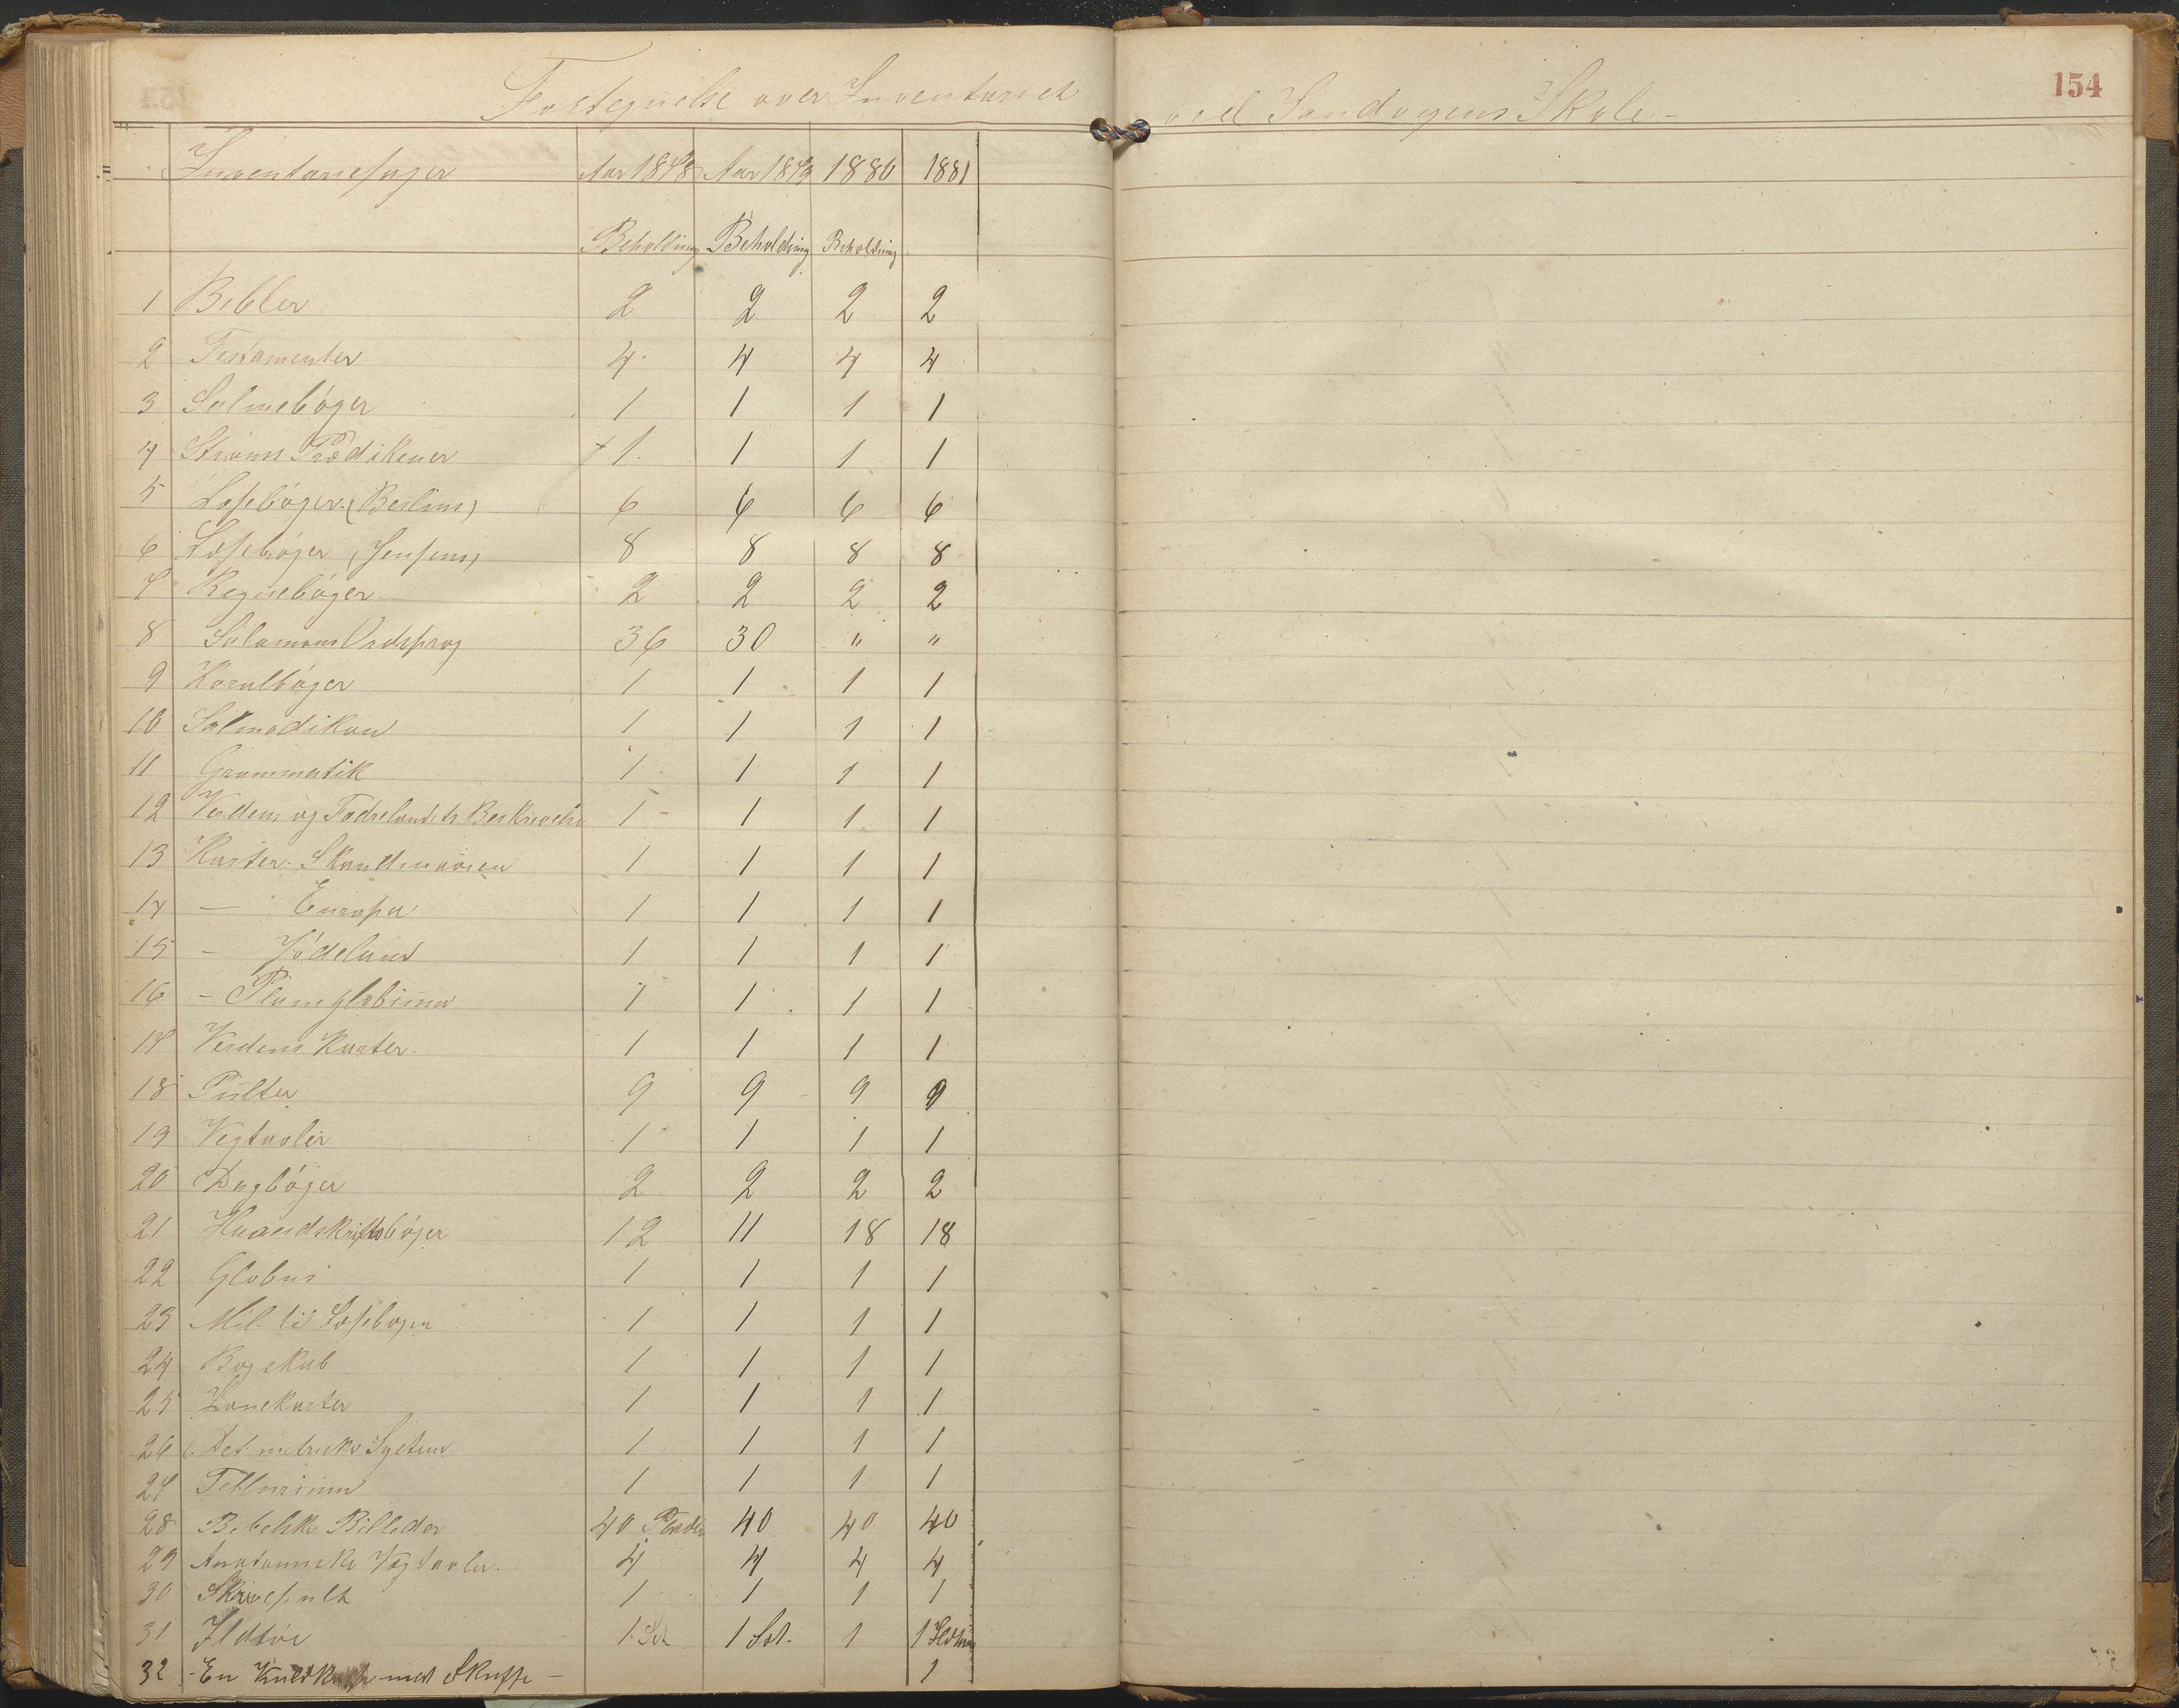 Fortegnelse over Inventariet ved Sandøgens Skole -
154
Inventariesager Aar 1878 Aar 1879 1880 1881
Beholdning Beholdning Beholdning
1 Bibler 2 2 2 2
2 Testamenter 4 4 4 4
3 Salmebøger 1 1 1 1
4 Strøms Prædikener + 1 1 1 1
5 Læsebøger (Berlins) 6 6 6 6
6 Læsebøger (Jensens) 8 8 8 8
7 Regnebøger 2 2 2 2
8 Salamons Ordsprog 36 30 " "
9 Koralbøger 1 1 1 1
10 Salmodikon 1 1 1 1
11 Grammatik 1 1 1 1
12 Verdens og Fædrelandets Beskrivelse 1 1 1 1
13 Karter. Skandinavien 1 1 1 1
14 — Europa 1 1 1 1
15 - Jødeland 1 1 1 1
16 - Planiglobium 1 1 1 1
17 Verdens Karter 1 1 1 1
18 Pulter 9 9 9 9
19 Vegtavler 1 1 1 1
20 Dagbøger 2 2 2 2
21 Haandskriftsbøger 12 11 18 18
22 Globus 1 1 1 1
23 Mil. til Læsebogen 1 1 1 1
24 Bogskab 1 1 1 1
25 Karter 1 1 1 1
26 Det metriske System 1 1 1 1
27 Tellurium 1 1 1 1
28 Bibelske Billeder 40 40 40 40
29 Anatomiske Vægtavler. 4 4 4 4
30 Skrivepult 1 1 1 1
31 Ildtøi 1 Set 1 Set. 1 1
32 - En Kulkasse med Skuffe — 1